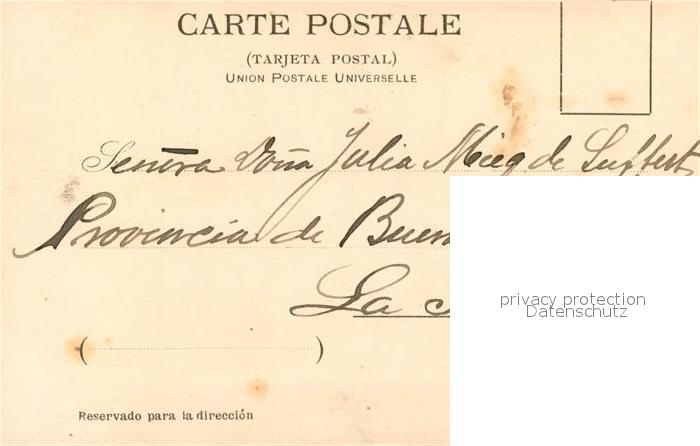 CARTE POSTALE
(TARJETA POSTAL)
UNION POSTALE UNIVERSELLE
Señora Doña Julia Mieg de Seiffert
Provincia de Buen
La
privacy protection
Datenschutz
( )
Reservado para la dirección